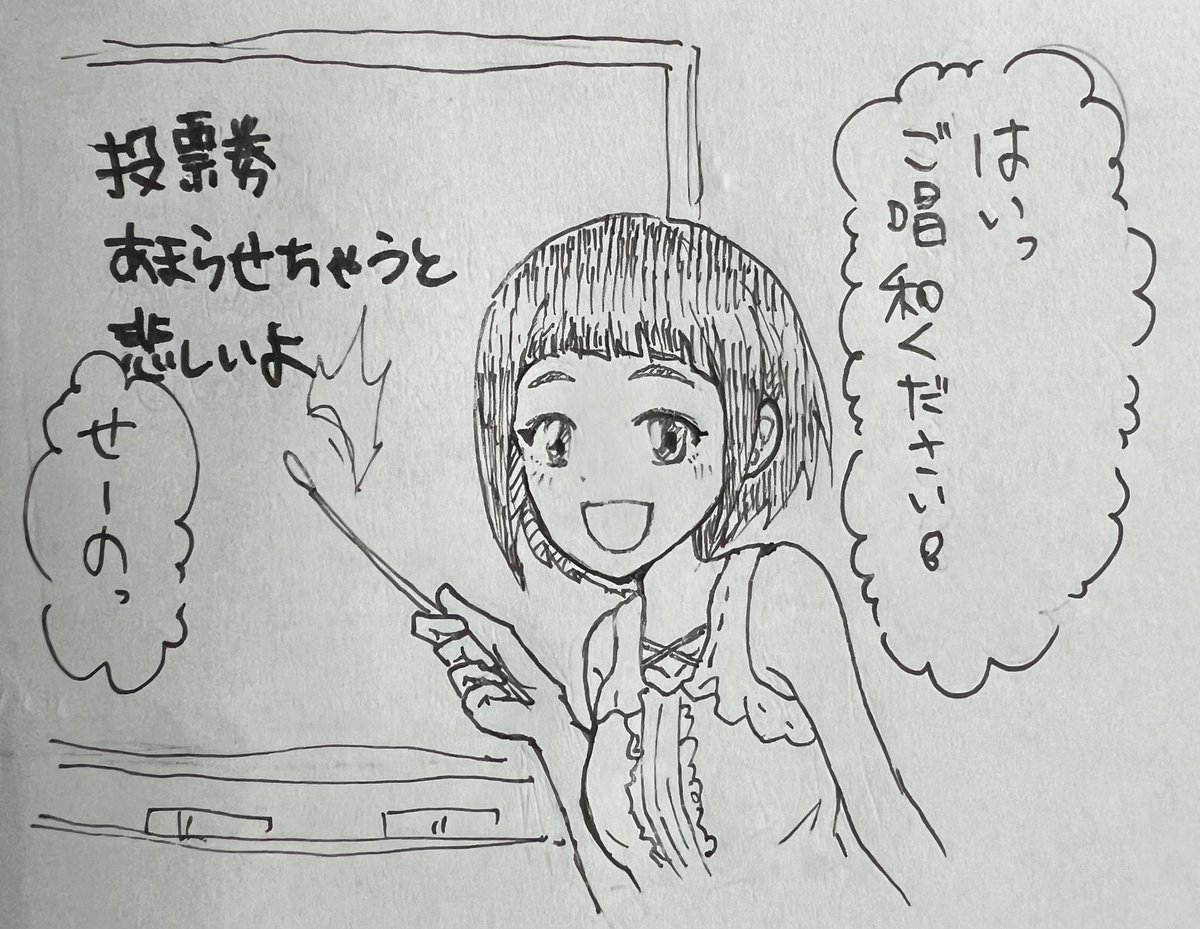 はいっ
ご唱和ください。
投票券
あまらせちゃうと
悲しいよ
せーのっ